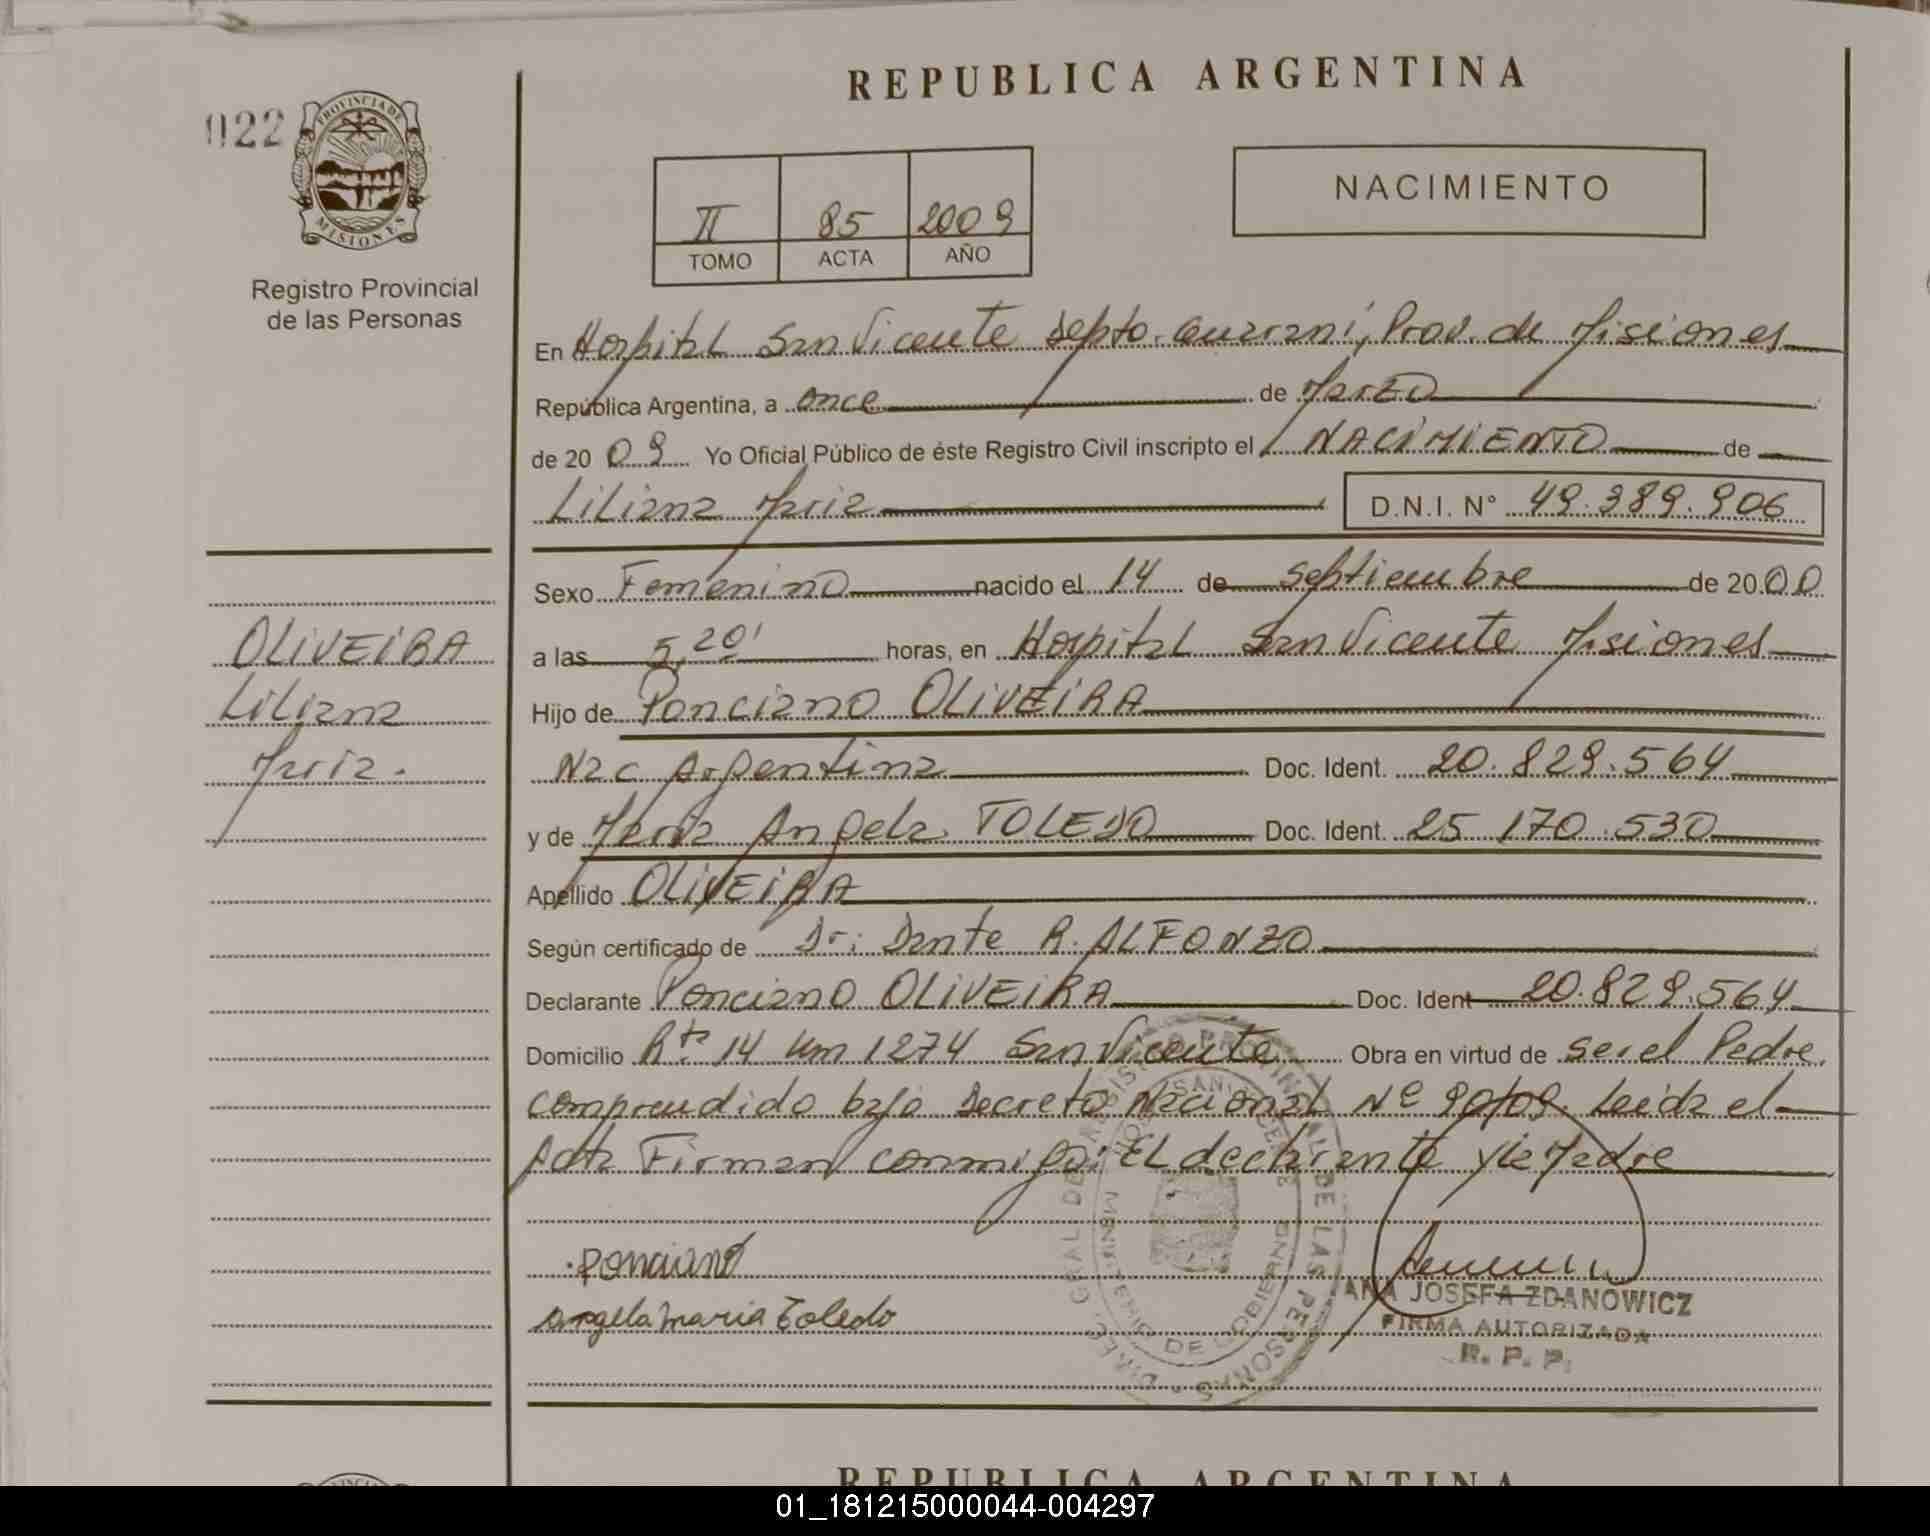 REPUBLICA ARGENTINA
022
PROVINCIA DE
MISIONES
Registro Provincial
de las Personas
NACIMIENTO
II 85 2009
TOMO ACTA AÑO
En Hospital San Vicente Depto. Guarani, Prov. de Misiones
República Argentina, a once de Marzo
de 2009 Yo Oficial Público de éste Registro Civil inscripto el NACIMIENTO de
Liliana Maria D.N.I. N° 49.389.906
Sexo Femenino nacido el 14 de Septiembre de 2000
a las 5,20' horas, en Hospital San Vicente Misiones
Hijo de Ponciano OLIVEIRA
Nac Argentina Doc. Ident. 20.829.564
y de Maria Angela TOLEDO Doc. Ident. 25 170.530
Apellido OLIVEIRA
Según certificado de Dr: Dante R. ALFONZO
Declarante Ponciano OLIVEIRA Doc. Ident 20.829.564
Domicilio Rta 14 Km 1274 San Vicente Obra en virtud de ser el Padre
comprendido bajo Decreto Nacional Nº 90/09. Leida el
Acta Firman conmigo: EL declarante y la Madre
OLIVEIRA
Liliana
Maria.
Ponciano
Angela Maria Toledo
ANA JOSEFA ZDANOWICZ
FIRMA AUTORIZADA
R. P. P.
REPUBLICA ARGENTINA
01_181215000044-004297